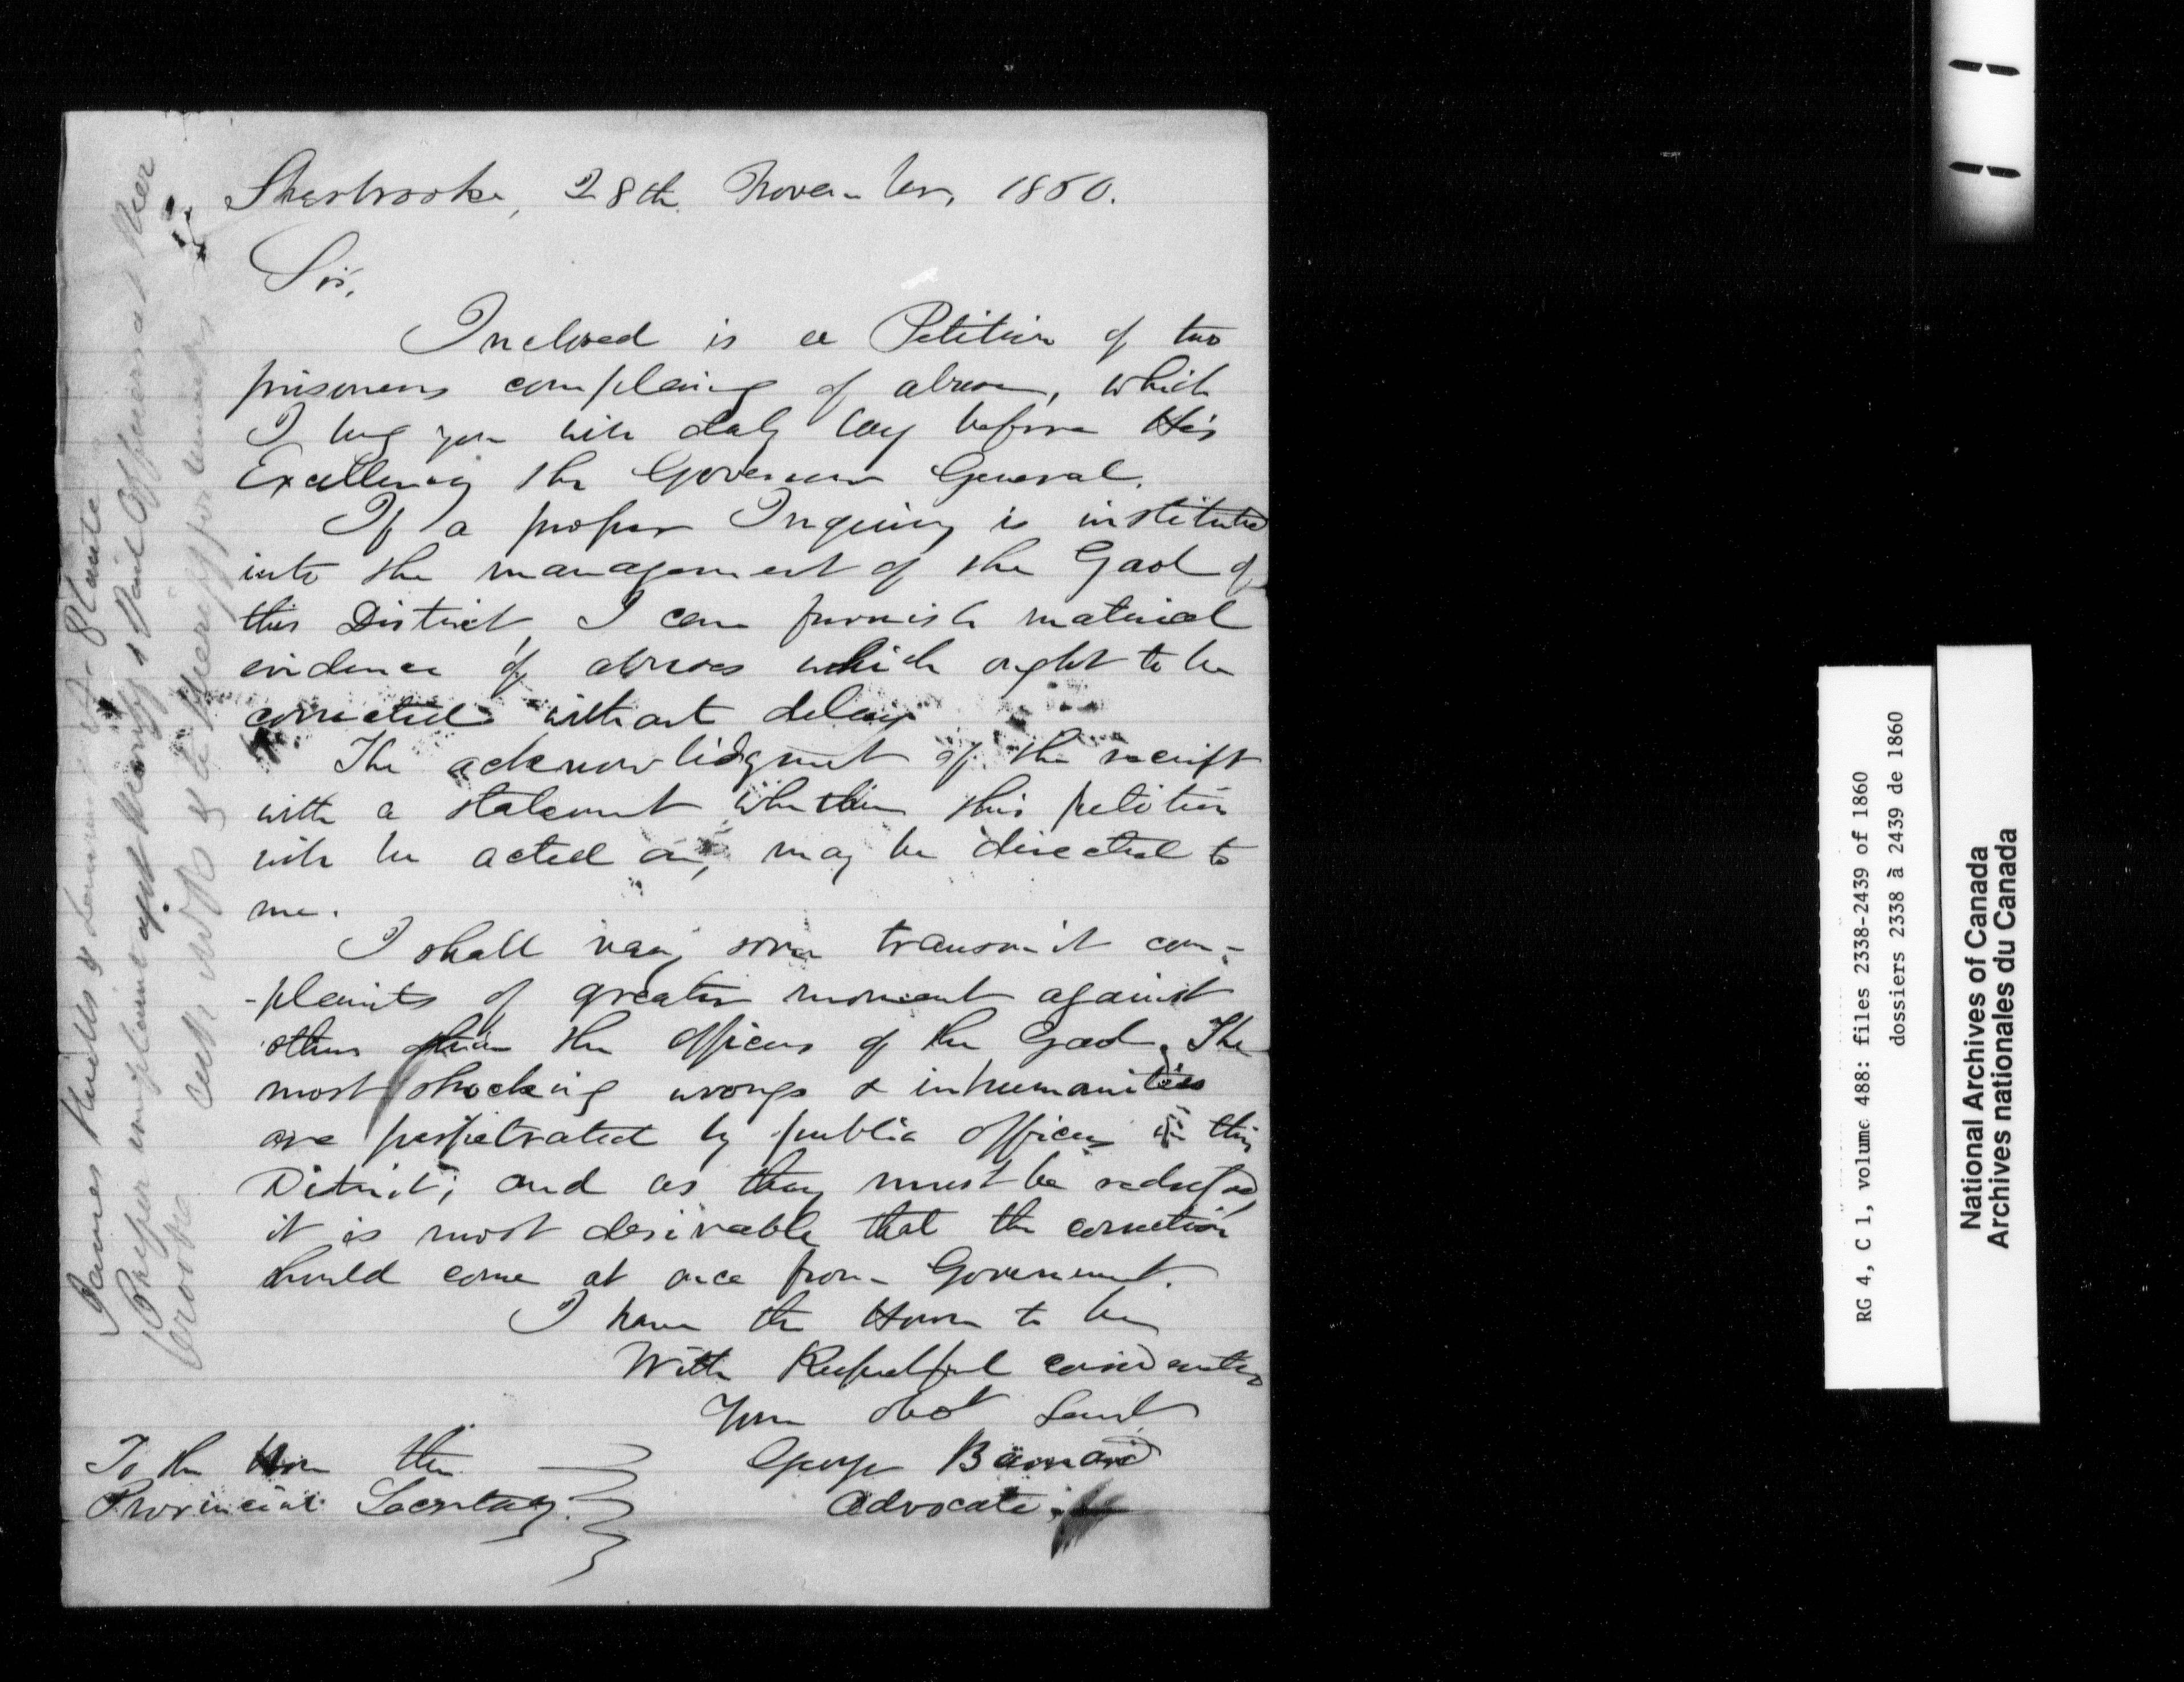 Sherbrooke, 28th November, 1860.
Sir,
Inclosed is a Petition of two
prisoners complaing of abuse, which
I beg you will duly lay before His
Excellency the Governor General.
If a proper Inquiry is instituted
into the management of the Gaol of
this District, I can furnish material
evidence of abuses which ought to be
corrected without delay
The acknowledgment of the receipt
with a statement whether this petition
will be acted on, may be directed to
me.
I shall very soon transmit com-
-plaints of greater moment against
others than the officers of the Gaol. The
most shocking wrongs & inhumanities
are perpetrated by public officers in this
District; and as they must be
it is most desirable that the correction
should come at once from Government.
I have the Honor to be
With Respectful consideration
Your obdt Servt
George Barnard
Advocate
To the Hon the
Provincial Secretary.
James &
complaint agst
brooke
RG 4, C 1, volume 488: files 2338-2439 of 1860
dossiers 2338 à 2439 de 1860
National Archives of Canada
Archives nationales du Canada